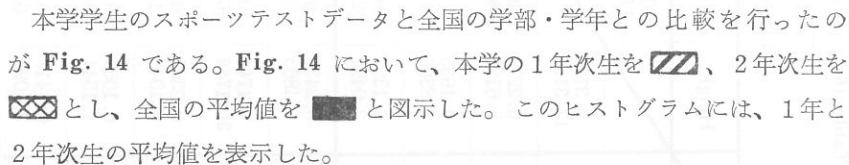 本学学生のスポーツテストデータと全国の学部・学年との比較を行ったの
が Fig. 14 である。Fig. 14 において、本学の1年次生を 、2年次生を
とし、全国の平均値を と図示した。このヒストグラムには、1年と
2年次生の平均値を表示した。